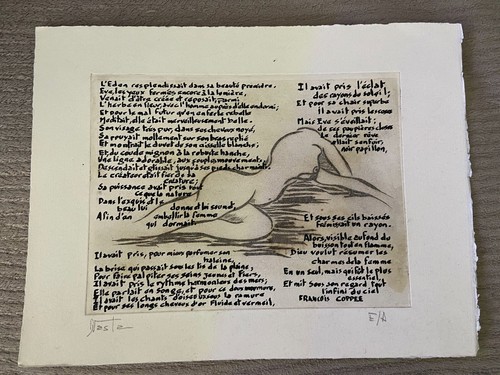 L'Eden resplendissait dans sa beauté première,
Eve, les yeux fermés encore à la lumière,
Venait d'être créée et reposait, parmi
L'herbe en fleur, avec l'homme auprès d'elle endormi;
Et pour le mal futur qu'en enfer le rebelle
Méditait, elle était merveilleusement belle.
Son visage très pur, dans ses cheveux noyé,
S'appuyait mollement sur son bras replié
Et montrait le duvet de son aisselle blanche;
Et du coude mignon à la robuste hanche,
Une ligne adorable, aux souples mouvements,
Descendait et glissait jusqu'à ses pieds charmants.
Le créateur était fier de sa
créature;
Sa puissance avait pris tout
ce que la nature
Dans l'exquis et le
beau lui donne et lui soumet,
Afin d'en embellir la femme
qui dormait.
Il avait pris, pour mieux parfumer son
haleine,
La brise qui passait sous les lis de la plaine;
Pour faire palpiter ses seins jeunes et fiers,
Il avait pris le rythme harmonieux des mers;
Elle parlait en songe, et pour ce doux murmure,
Il avait les chants d'oiseaux sous la ramure
Et pour ses longs cheveux d'or fluide et vermeil,
Il avait pris l'éclat
des rayons du soleil;
Et pour sa chair superbe
il avait pris les roses
Mais Eve s'éveillait;
de ses paupières closes
Le dernier rêve
allait s'enfuir,
noir papillon,
Et sous ses cils baissés
frémissait un rayon.
Alors, visible au fond du
buisson tout en flamme,
Dieu voulut résumer les
charmes de la femme
En un seul, mais qui fût le plus
essentiel,
Et mit sous son regard tout
l'infini du ciel
FRANÇOIS COPPEE
E/A